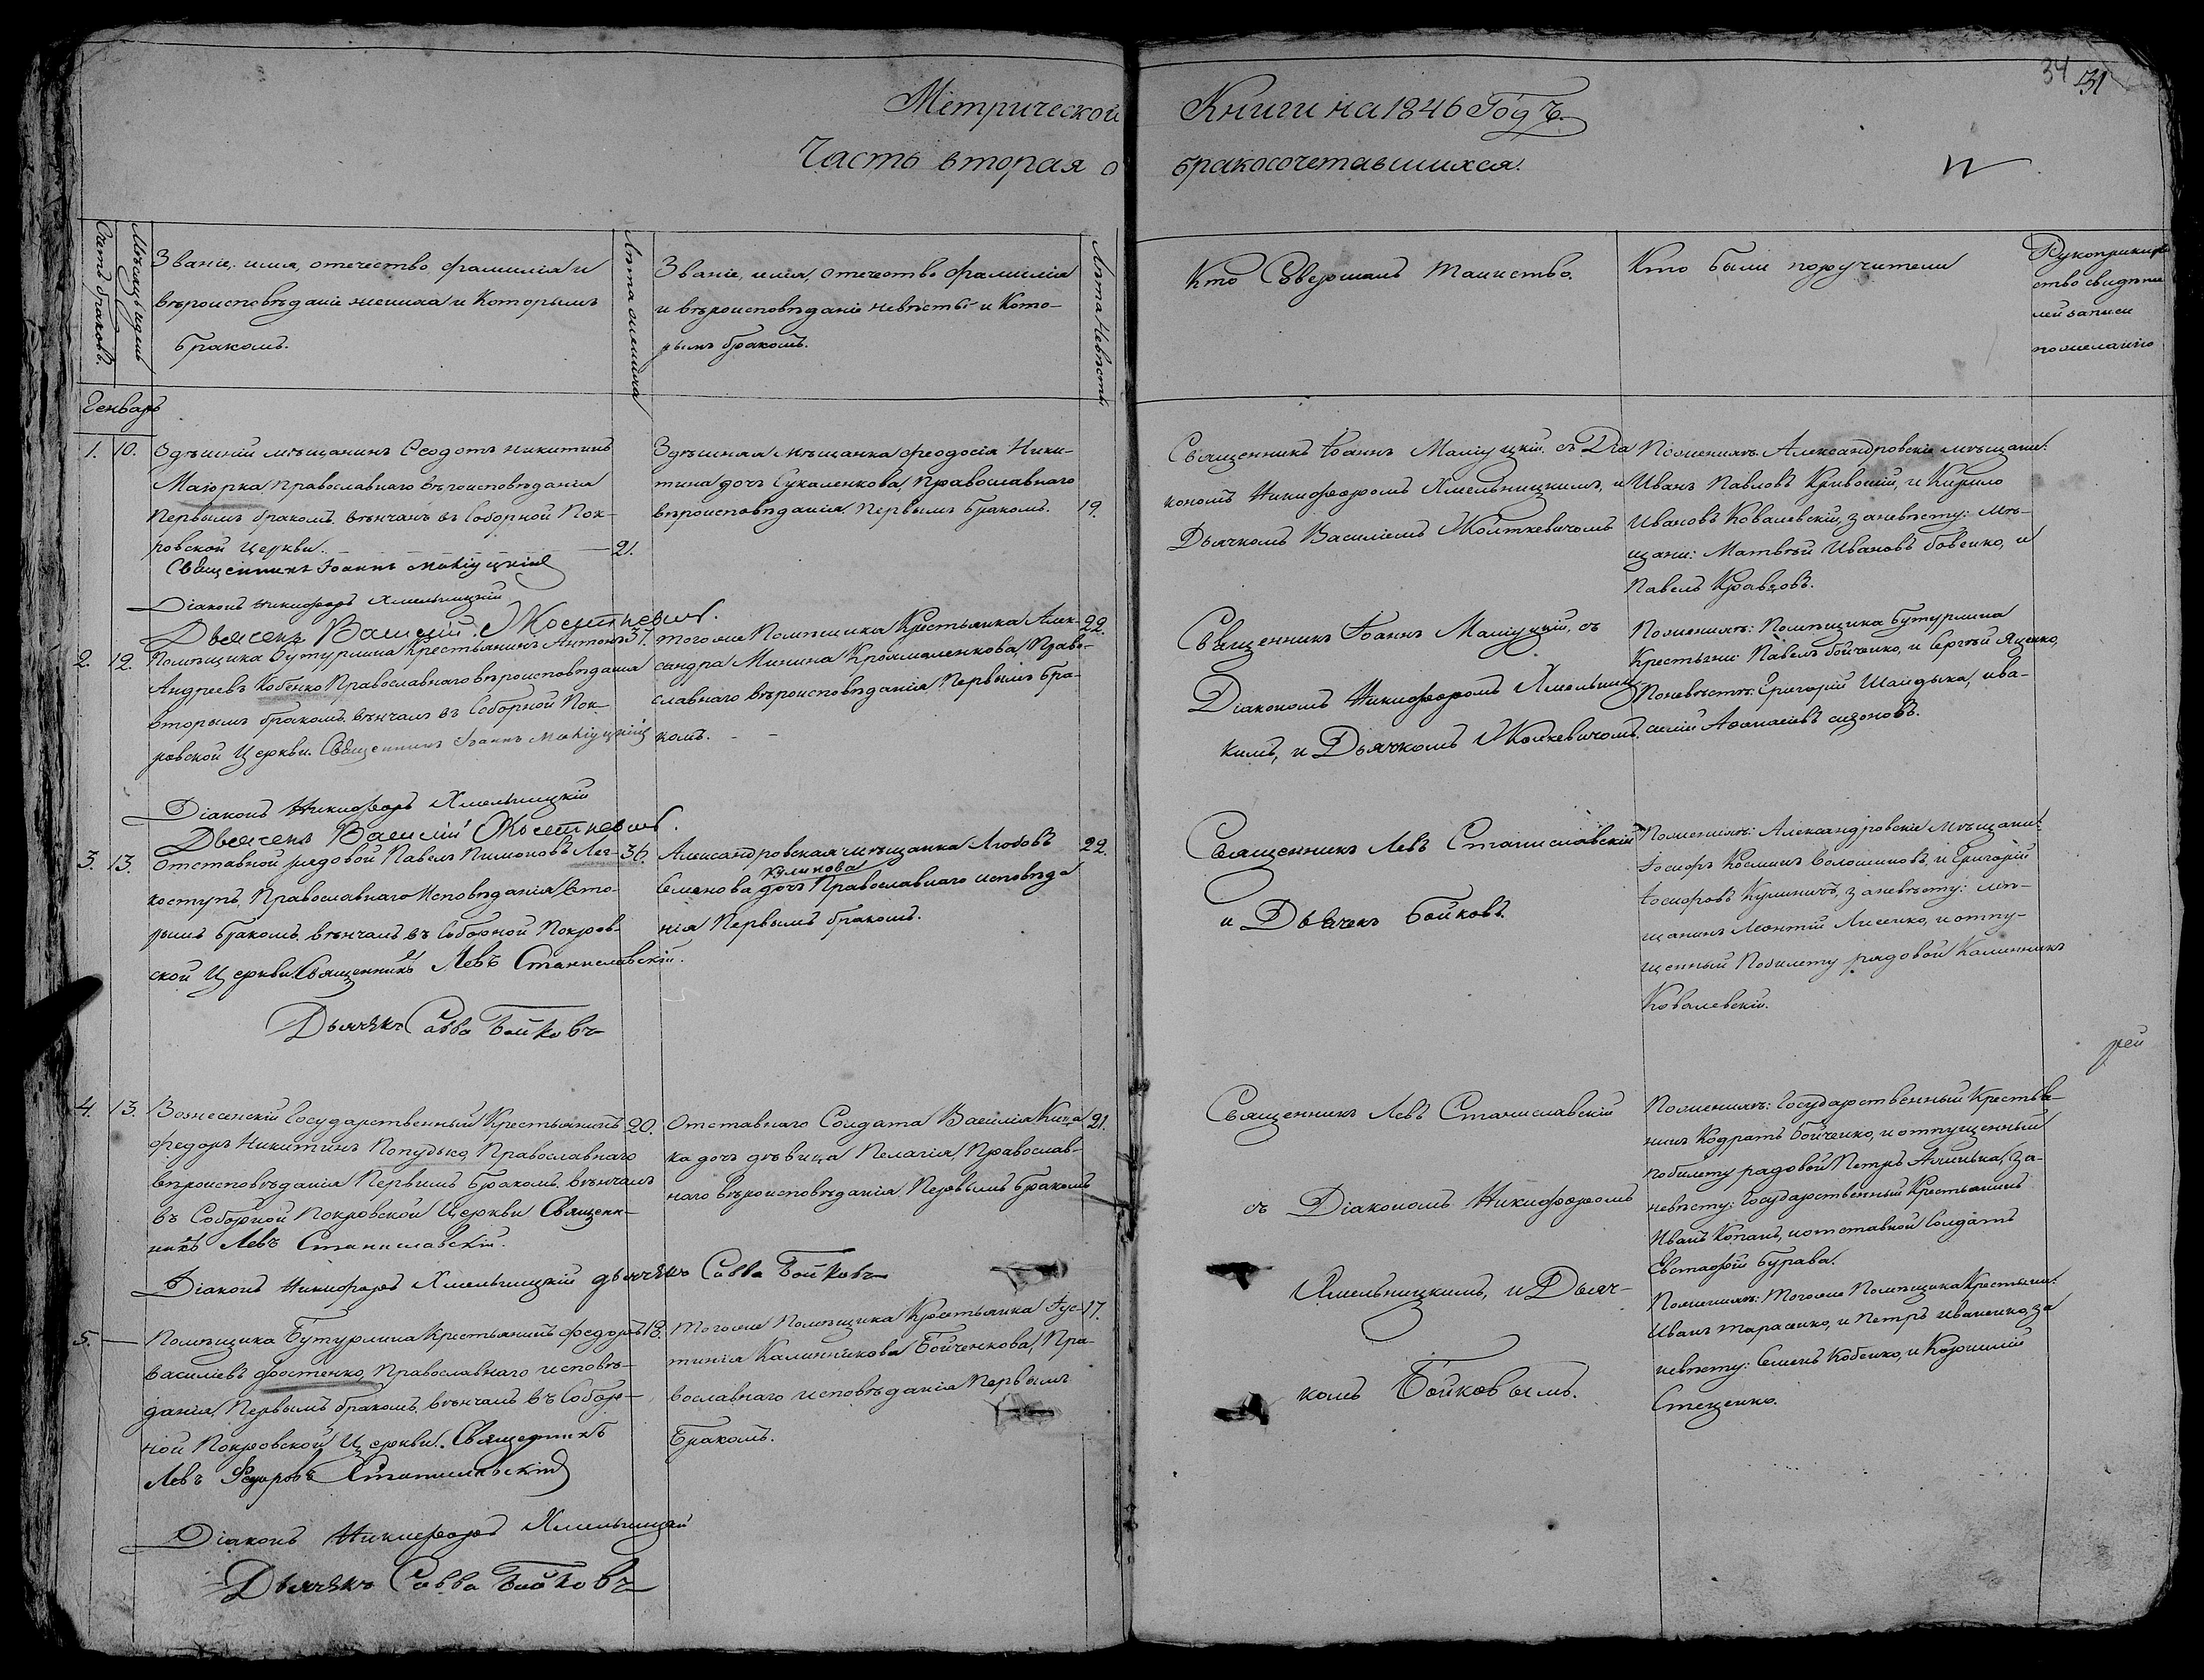 34 31
Метрической Книги на 1846 Годъ.
Часть вторая о бракосочетавшихся.
Счетъ браковъ.
Мѣсяцъ и день
Званіе, имя, отечество, фамилія и
вѣроисповѣданіе жениха и Которымъ
бракомъ.
Лѣта жениха
Званіе, имя, отечество фамилія
и вѣроисповѣданіе невѣсты и Кото-
рымъ бракомъ.
Лѣта Невѣсты
Кто Совершалъ Таинство.
Кто были поручители
Рукоприклад
ство свидѣте
лей записи
по желанію
Генварь
1. 10.
Здѣшній мѣщанинъ Феодотъ Никитинъ
Маюрка, Православнаго вѣроисповѣданія
Первымъ бракомъ, вѣнчанъ въ Соборной Пок-
ровской Церкви. — 21.
Священникъ Іоаннъ
Діаконъ Никифоръ Хмельницкій
Дьячекъ Василій
Здѣшняя мѣщанка Феодосія Ники-
тина дочь Сукаленкова, Православнаго
вѣроисповѣданія, Первымъ бракомъ. 19.
Священникъ Іоаннъ съ Діа
кономъ Никифоромъ Хмельницкимъ, и
Дьячкомъ Василіемъ
По женихѣ: Александровскіе мѣщани:
Иванъ Павловъ Кривошій, и Кирило
Ивановъ Ковалевскій, за невѣсту: мѣ-
щани: Матвѣй Ивановъ Бовенко, и
Павелъ Кравцовъ.
2. 12.
Помѣщика Бутурлина Крестьянинъ Антонъ 37.
Андреевъ Кобенко Православнаго вѣроисповѣданія
вторымъ бракомъ, вѣнчанъ въ Соборной Пок-
ровской Церкви. Священникъ Іоаннъ
Діаконъ Никифоръ Хмельницкій
Дьячекъ Василій
того же Помѣщика Крестьянка Алек- 22.
сандра Минина Крохмаленкова, Право-
славнаго вѣроисповѣданія, Первымъ бра-
комъ. - -
Священникъ Іоаннъ съ
Діакономъ Никифоромъ Хмельниц-
кимъ, и Дьячкомъ
По женихѣ: Помѣщика Бутурлина
Крестьяни: Павелъ Бойченко, и Сергѣй Яценко,
По невѣстѣ: Григорій Шайдыка, и Ва-
силій Афанасіевъ
3. 13.
Отставной рядовой Павелъ Пимоновъ Лег- 36.
коступъ, Православнаго Исповѣданія Вто-
рымъ бракомъ, вѣнчанъ въ Соборной Покров-
ской Церкви Священникъ Левъ Станиславскій.
Дьячекъ Савва Бойковъ
Александровская мѣщанка Любовь 22.
Куликова
Семенова дочь Православнаго исповѣда
нія Первымъ бракомъ.
Священникъ Левъ Станиславскій
и Дьячекъ Бойковъ.
По женихѣ: Александровскіе мѣщани:
Іосифъ Косминъ Волошиновъ, и Григорій
Іосифовъ Куличъ, за невѣсту: мѣ-
щанинъ Леонтій Лисенко, и отпу-
щенный По билету рядовой Калинникъ
Ковалевскій.
рей
4. 13.
Вознесенскій Государственный Крестьянинъ 20.
Федоръ Никитинъ Попудько, Православнаго
вѣроисповѣданія Первымъ бракомъ, вѣнчанъ
въ Соборной Покровской Церкви Священ-
никъ Левъ Станиславскій.
Діаконъ Никифоръ Хмельницкій дьячекъ Савва Бойковъ
Отставнаго Солдата Василія 21.
ка дочь дѣвица Пелагія, Православ-
наго вѣроисповѣданія Первымъ бракомъ
Священникъ Левъ Станиславскій
съ Діакономъ Никифоромъ
Хмельницкимъ, и Дьяч-
комъ Бойковымъ.
По женихѣ: Государственный Крестья-
нинъ Кодратъ Бойченко, и отпущенный
по билету рядовой Петръ за-
невѣсту: Государственный Крестьянинъ
Иванъ и отставной Солдатъ
Евстафій Бурава.
5. —
Помѣщика Бутурлина Крестьянинъ Федоръ 18.
Василіевъ Фостенко, Православнаго исповѣ-
данія, Первымъ бракомъ, вѣнчанъ въ Собор-
ной Покровской Церкви. Священникъ
Левъ Федоровъ Станиславскій
Діаконъ Никифоръ Хмельницкій
Дьячекъ Савва Бойковъ
Того же Помѣщика Крестьянка Іус- 17.
тинія Калинникова Бойченкова, Пра-
вославнаго исповѣданія Первымъ
Бракомъ.
По женихѣ: Того же Помѣщика Крестьяни:
Иванъ Тарасенко, и Петръ Иваненко, за
невѣсту: Семенъ Кобенко, и Корнилій
Стеценко.